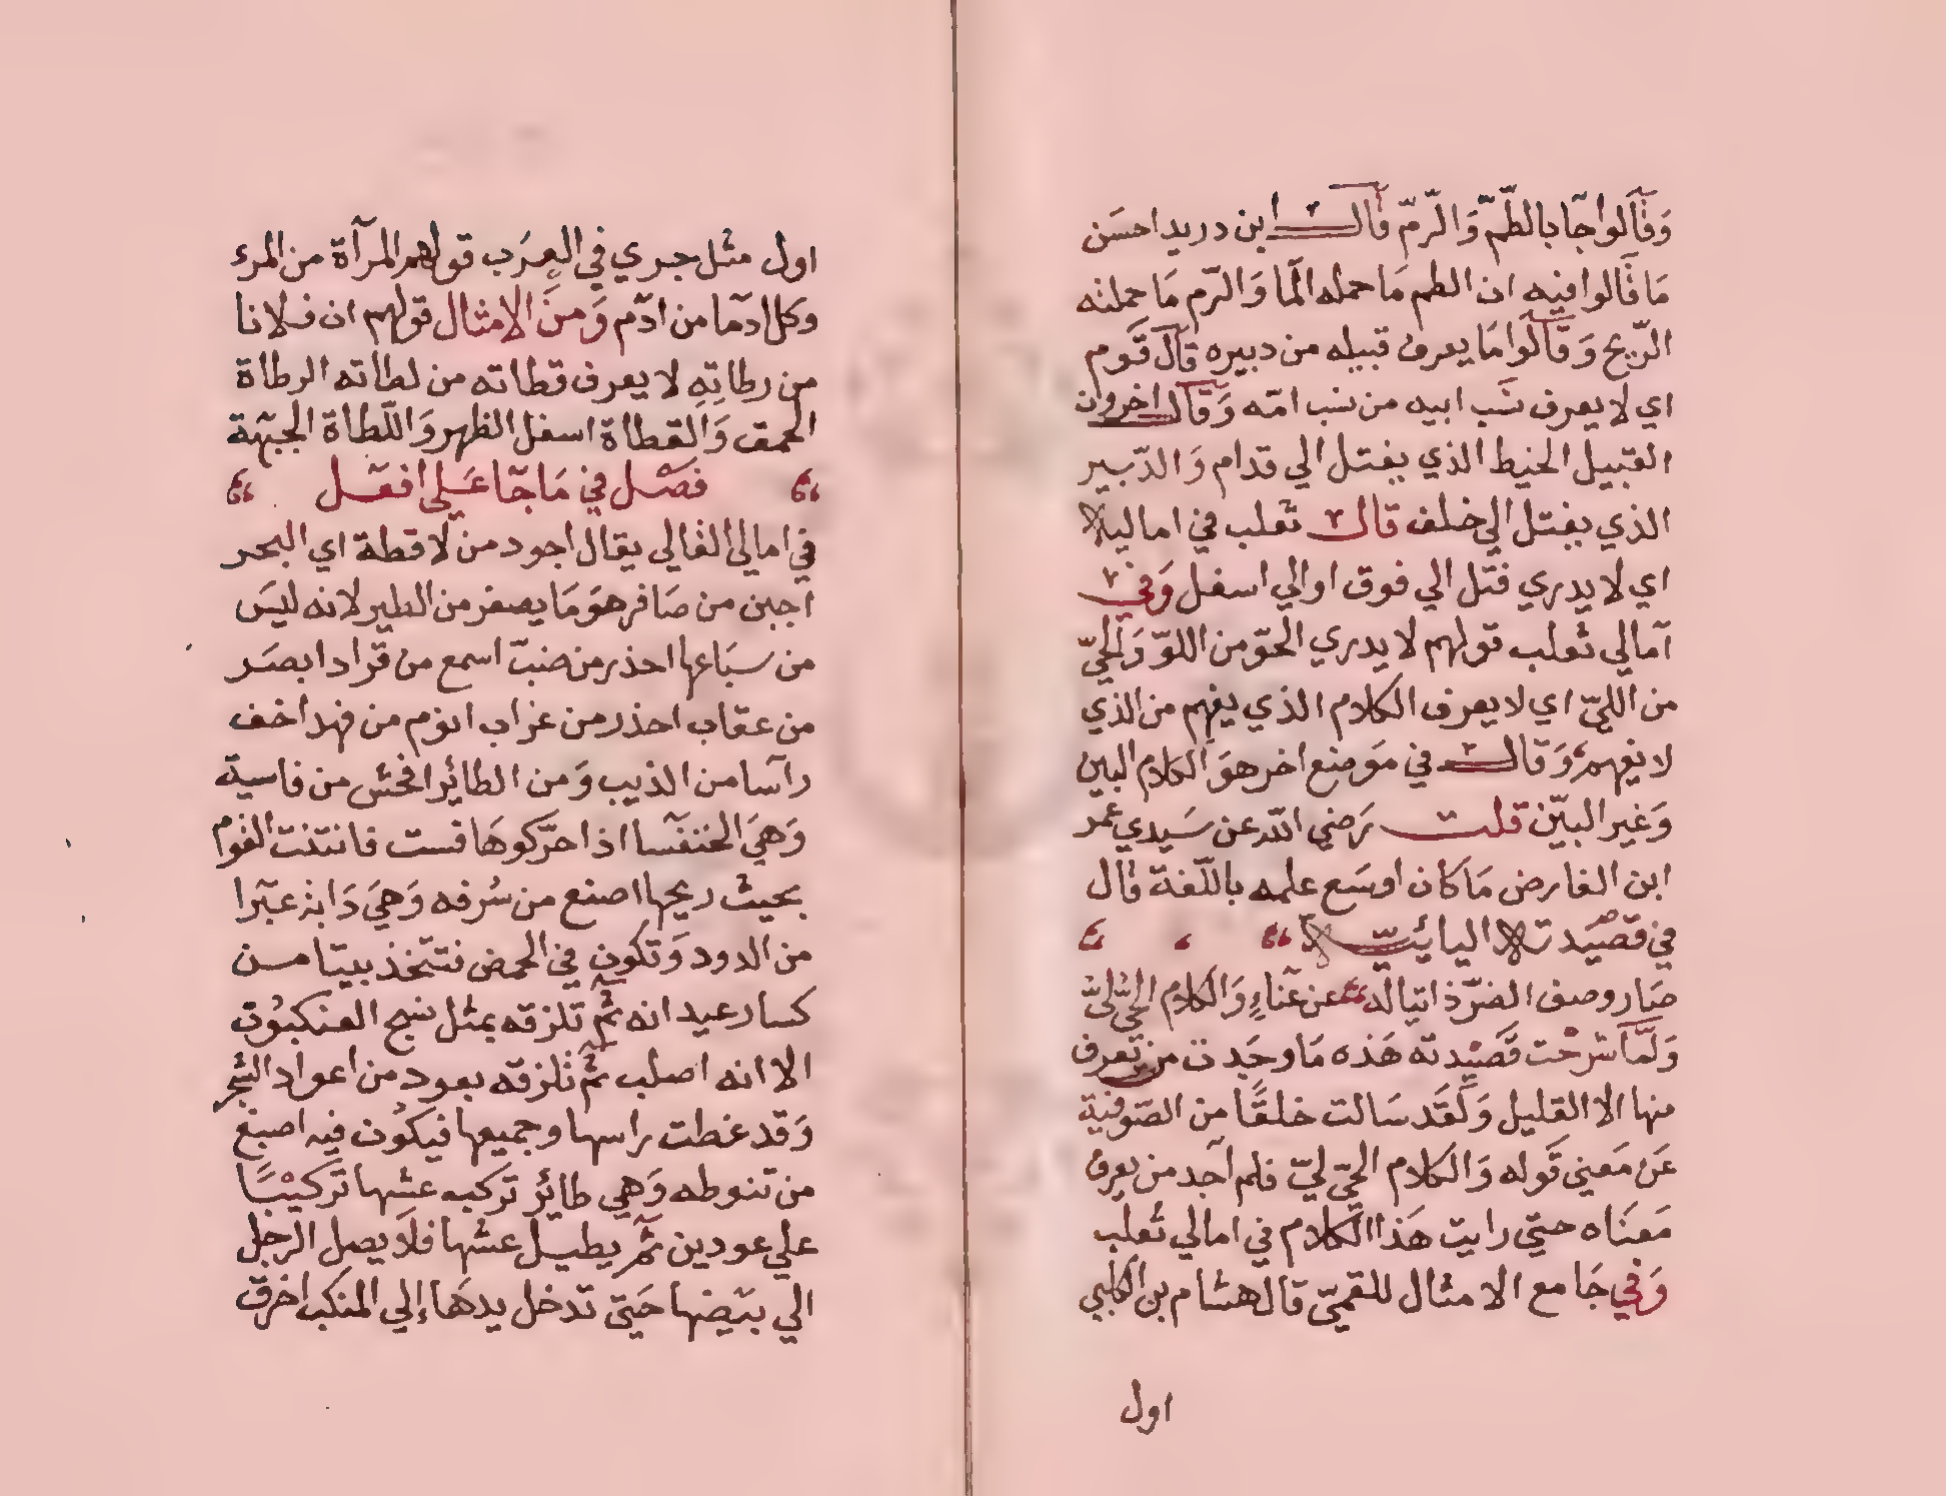 وَقَالوا جَا بالطّمّ وَالرّمّ قال ابن دريد احسَن
مَا قالوا فيه ان الطم مَا حمله المَا وَالرّم مَا حملته
الرّيح وَقَالوا مَا يعرف قبيله من دبيره قال قَوم
اي لا يعرف نسَب ابيه من نسب امّه وَقَال اخرون
القبيل الخيط الذي يفتل الي قدام وَالدّبير
الذي يفتل الي خلف قال ثعلب في اماليه
اي لا يدري فتل الي فوق او الي اسفل وَفي
آمالي ثعلب قولهم لا يدري الحوّ من اللوّ وَالحيّ
من الليّ اي لا يعرف الكلام الذي يفهم من الذي
لا يفهم وَقال في مَوضع اخر هوَ الكلام البين
وَغير البيّن قلت رَضي الله عن سَيدي عمر
ابن الفارض مَا كان اوسَع علمه باللّغة قال
في قصَيدته اليائيّة
صَار وصف الضرّ ذاتيا له عن عَناءٍ وَالكلام الحيّ ليّ
وَلمّا شرحْت قصَيْدته هَذه مَا وجَدت من تعرف
منها الا القليل وَلقَد سَالت خلقًا من الصّوفية
عَن مَعني قَوله وَالكلام الحيّ ليّ فلم آجد من يعرف
مَعنَاه حتيّ رايت هَذا الكلام في امالي ثعلب
وَفي جَامع الامثال للقميّ قال هشام بن الكلبي
اول
اول مثل جري في العرَب قولهم المرآة من المرء
وكل ادمَا من ادّم وَمنَ الامثال قولهم ان فلانا
من رطاتِهِ لا يعرف قطاته من لطاته الرطاة
الحمق وَالقطاة اسفل الظهر وَاللّطاة الجبهة
فصْل في مَا جَا عَلي افعَل
في امالي القالي يقال اجود من لاقطة اي البحر
اجبن من صَافر هوَ مَا يصفر من الطير لانه ليسَ
من سبَاعها احذر من ضبّ اسمع من قراد ابصَر
من عقاب احذر من غراب انوم من فهد اخف
راسا من الذيب وَمن الطائر افحش من فاسية
وَهيَ الخنفسَا اذا حرّكوهَا فست فانتنت القوم
بحيث ريحها اصنع من سُرفه وَهيَ دَابة غبرَا
من الدود وَتكون في الحمض فتتّخذ بيتا من
كسار عيدانه ثمّ تلزقه بمثل نسج العنكبُوت
الا انه اصلب ثمّ تلزقه بعود من اعواد الشجر
وَقد غطت راسها وجميعها فيكُون فيه اصنع
من تنوطه وَهي طائر تركبه عشها تركيْبًا
علي عودين ثمّ يطيل عشها فلَا يصل الرجل
الي بيَضها حَتيّ تدخل يدهَا إلي المنكب اخرق